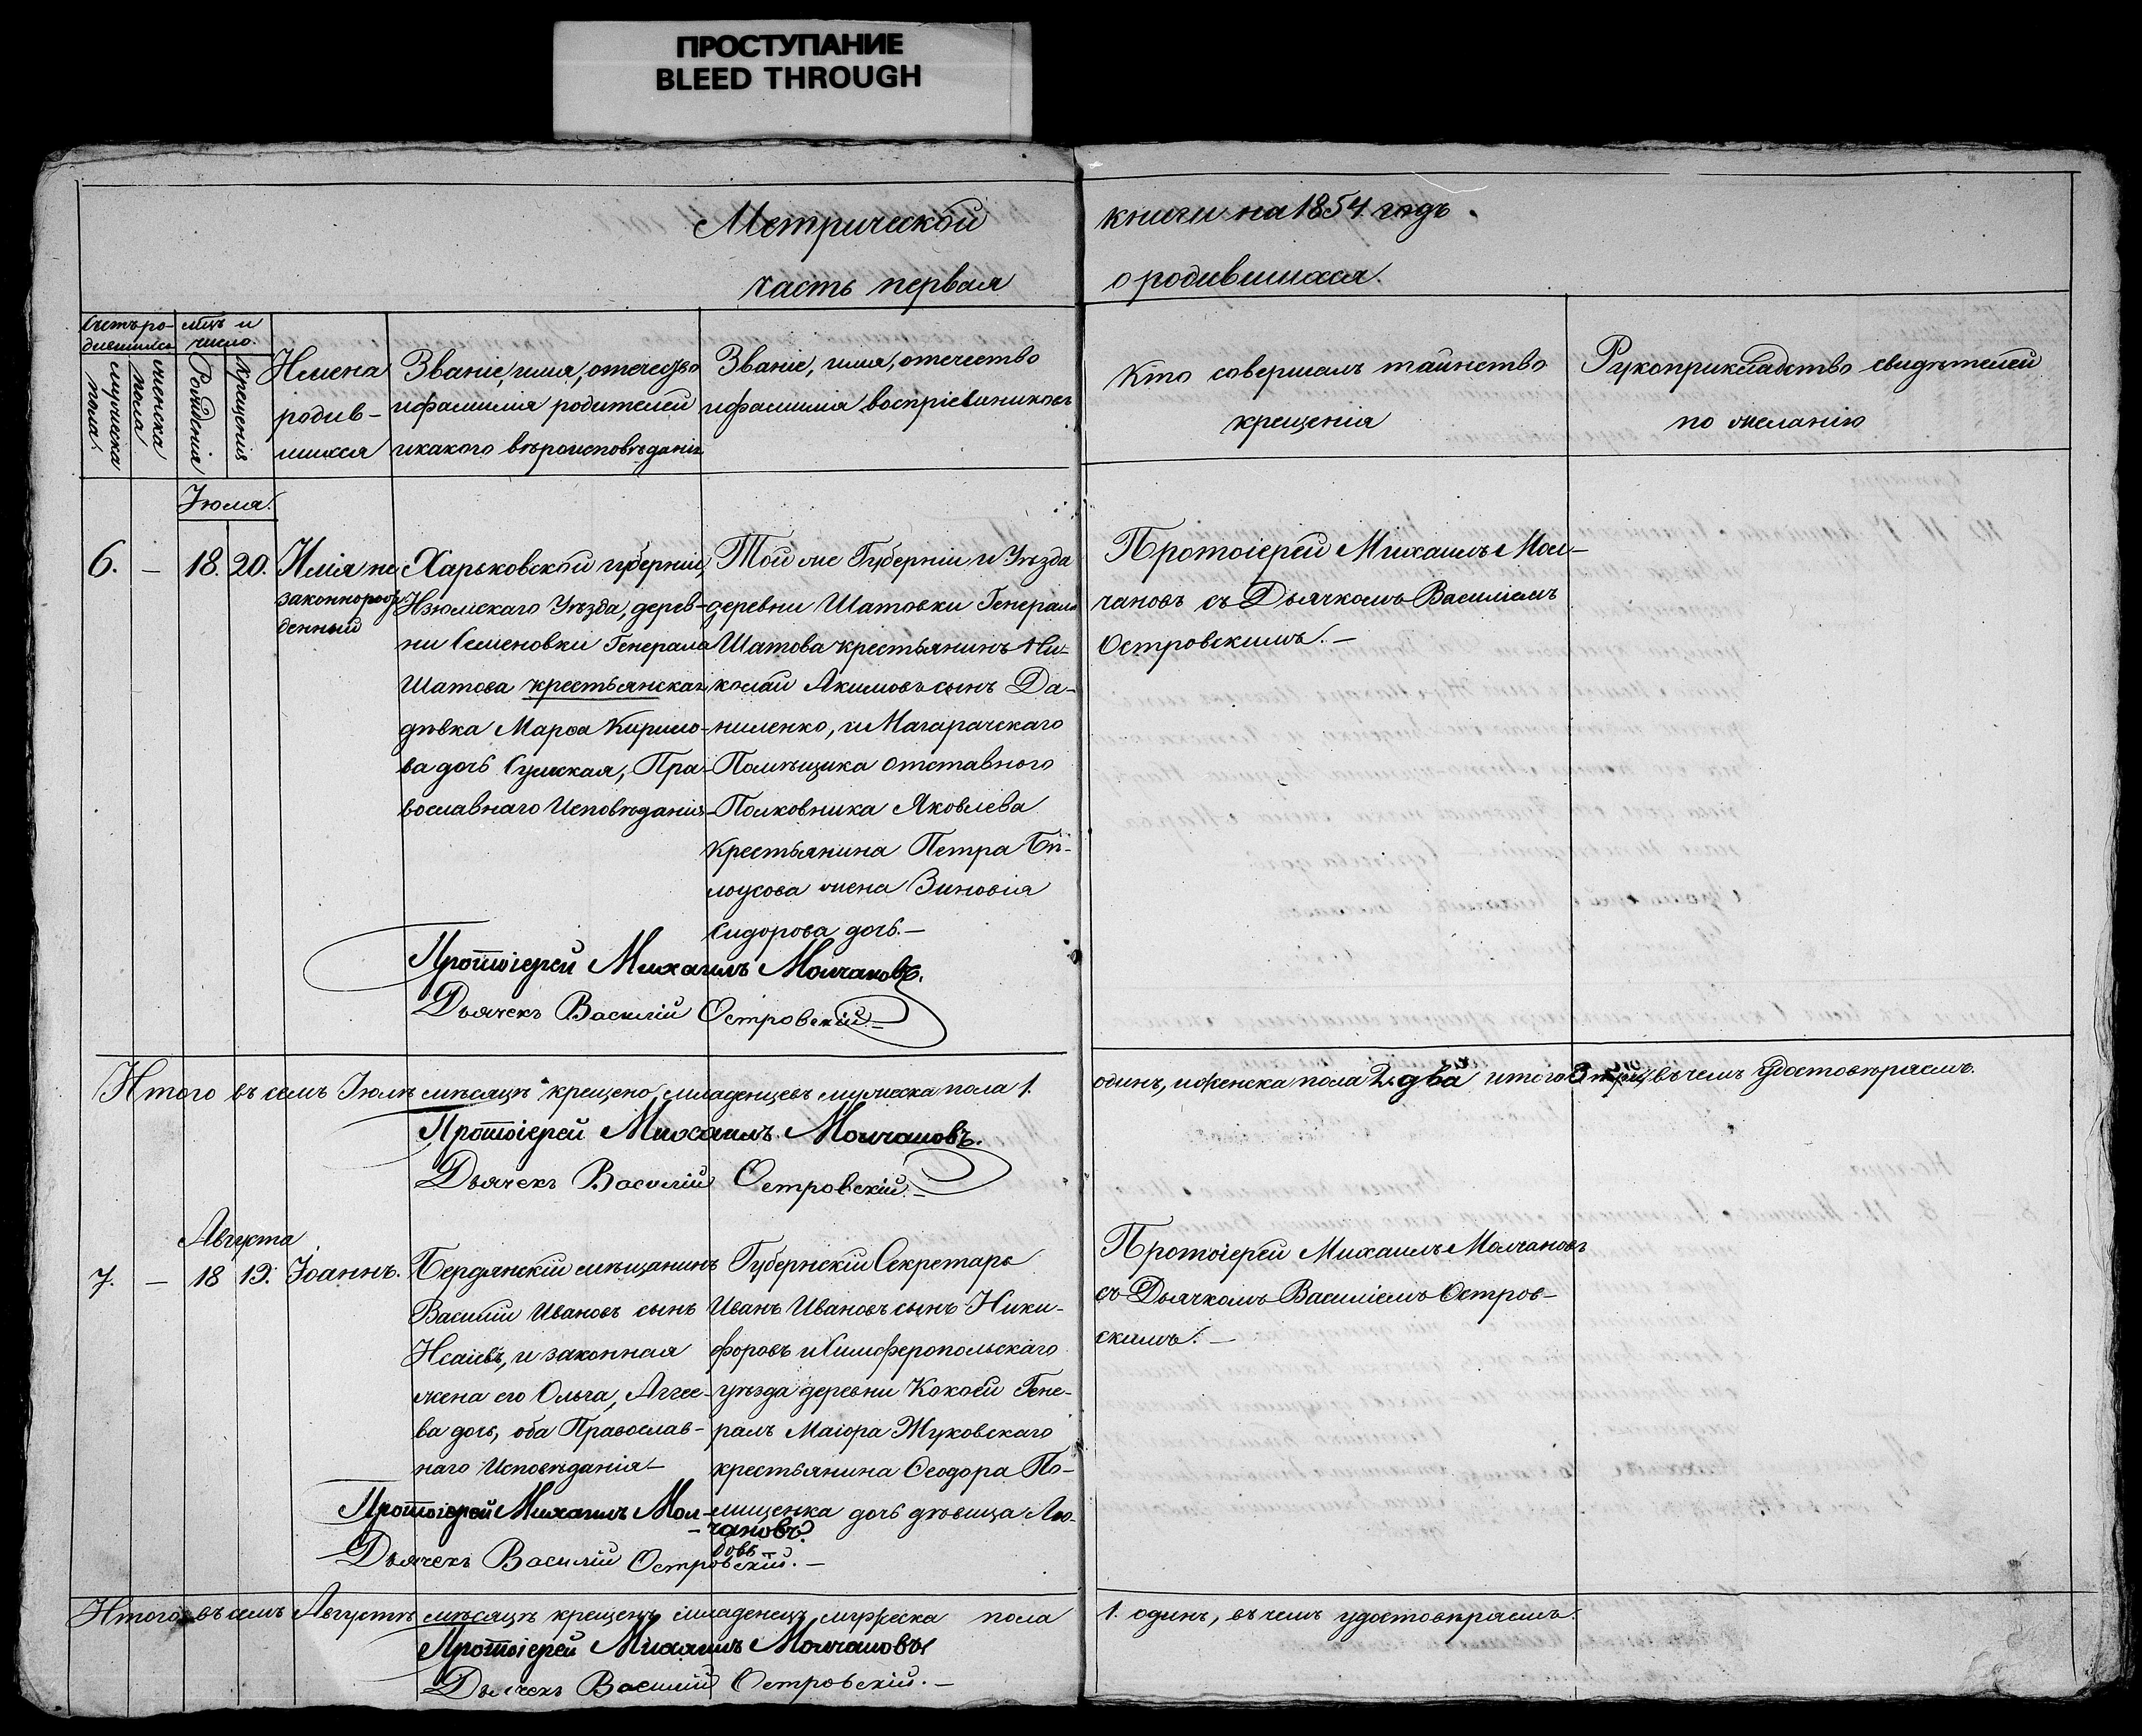 ПРОСТУПАНИЕ
BLEED THROUGH
Метрической
книги на 1854 годъ.
часть первая
о родившихся.
Счетъ ро-
дившихся
мѣц. и
число.
мужеска
пола.
женска
пола
Рожденія
Крещенія
Имена
родив-
шихся
Званіе, имя, отечество
и фамилія родителей
и какого вѣроисповѣданія
Званіе, имя, отечество
и фамилія воспріемниковъ
Кто совершалъ таинство
крещенія
Рукоприкладство свидѣтелей
по желанію
Іюля.
6. — 18. 20.
Илія не
законнорож-
денный
Харьковской губерніи,
Изюмскаго Уѣзда, дерев-
ни Семеновки Генерала
Шатова крестьянская
дѣвка Марѳа Кирило-
ва дочь Сумская, Пра-
вославнаго Исповѣданія
Той же Губерніи и Уѣзда
деревни Шатовки Генерала
Шатова крестьянинъ Ни-
колай Акимовъ сынъ Да-
ниленко, и Магарачскаго
Помѣщика отставного
Полковника Яковлева
крестьянина Петра Бѣ-
лоусова жена Зиновія
Сидорова дочь.—
Протоіерей Михаилъ Мол-
чановъ съ Дьячкомъ Василіемъ
Островскимъ.—
Протоіерей Михаилъ Молчановъ.
Дьячекъ Василій Островскій.—
Итого въ семъ Іюлѣ мѣсяцѣ крещено младенцевъ мужеска пола 1.
одинъ, и женска пола 2. два итого 3 три, въ чемъ удостовѣряемъ.
Протоіерей Михаилъ Молчановъ.
Дьячекъ Василій Островскій.—
Августа
7. — 18 19. Іоаннъ.
Бердянскій мѣщанинъ
Василій Ивановъ сынъ
Исаевъ, и законная
жена его Ольга, Аггее-
ва дочь, оба Православ-
наго Исповѣданія—
Губернскій Секретарь
Иванъ Ивановъ сынъ Ники-
форовъ и Симферопольскаго
уѣзда деревни Кокоси Гене-
ралъ Маіора Жуковскаго
крестьянина Ѳеодора По-
мищенка дочь дѣвица Лю-
бовь—
Протоіерей Михаилъ Молчановъ
съ Дьячкомъ Василіемъ Остров-
скимъ.—
Протоіерей Михаилъ Мол-
-чановъ
Дьячекъ Василій Островскій.—
Итого въ семъ Августѣ мѣсяцѣ крещенъ младенецъ мужеска пола
1. одинъ, въ чемъ удостовѣряемъ.
Протоіерей Михаилъ Молчановъ
Дьячекъ Василій Островскій.—